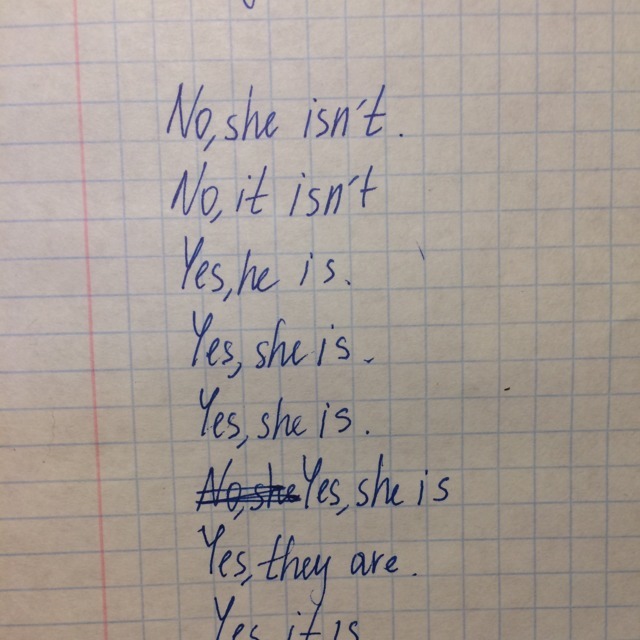 No, she isn't.
No, it isn't
Yes, he is.
Yes, she is.
Yes, she is.
No, she Yes, she is
Yes, they are.
Yes, it is